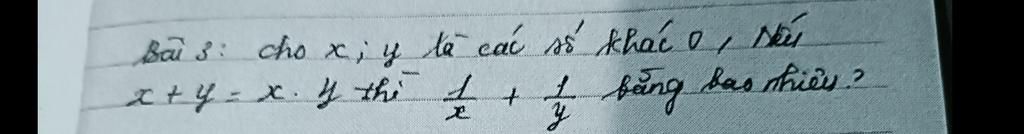 Bài 3: cho x; y là các số khác 0, Nếu
x + y = x . y thì 1/x + 1/y bằng bao nhiêu?